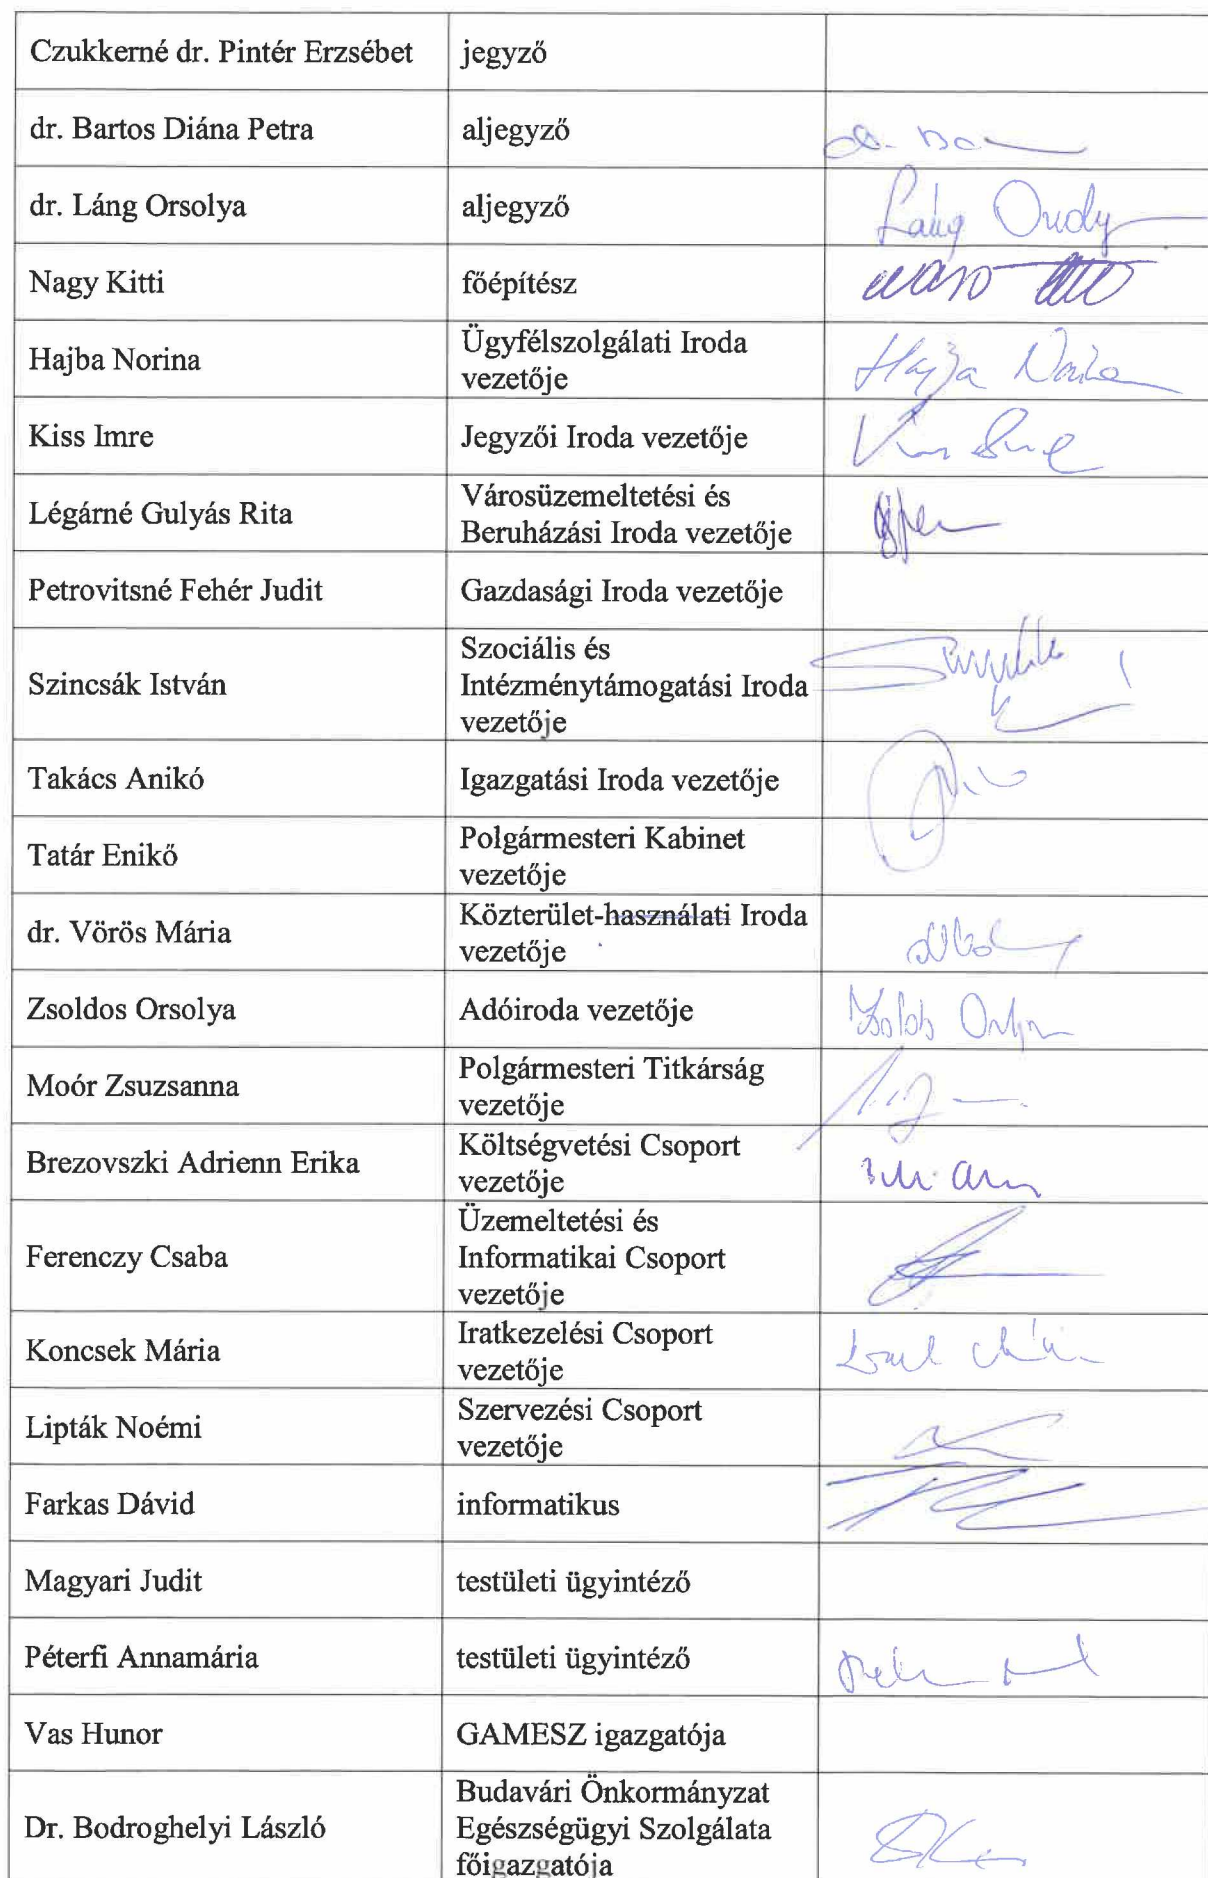 Czukkerné dr. Pintér Erzsébet jegyző
dr. Bartos Diána Petra aljegyző
dr. Láng Orsolya aljegyző
Láng
Nagy Kitti főépítész
Hajba Norina Ügyfélszolgálati Iroda
vezetője
Hajba
Kiss Imre Jegyzői Iroda vezetője
Légárné Gulyás Rita Városüzemeltetési és
Beruházási Iroda vezetője
Petrovitsné Fehér Judit Gazdasági Iroda vezetője
Szincsák István Szociális és
Intézménytámogatási Iroda
vezetője
Takács Anikó Igazgatási Iroda vezetője
Tatár Enikő Polgármesteri Kabinet
vezetője
dr. Vörös Mária Közterület-használati Iroda
vezetője
Zsoldos Orsolya Adóiroda vezetője
Moór Zsuzsanna Polgármesteri Titkárság
vezetője
Brezovszki Adrienn Erika Költségvetési Csoport
vezetője
Ferenczy Csaba Üzemeltetési és
Informatikai Csoport
vezetője
Koncsek Mária Iratkezelési Csoport
vezetője
Lipták Noémi Szervezési Csoport
vezetője
Farkas Dávid informatikus
Magyari Judit testületi ügyintéző
Péterfi Annamária testületi ügyintéző
Vas Hunor GAMESZ igazgatója
Dr. Bodroghelyi László Budavári Önkormányzat
Egészségügyi Szolgálata
főigazgatója